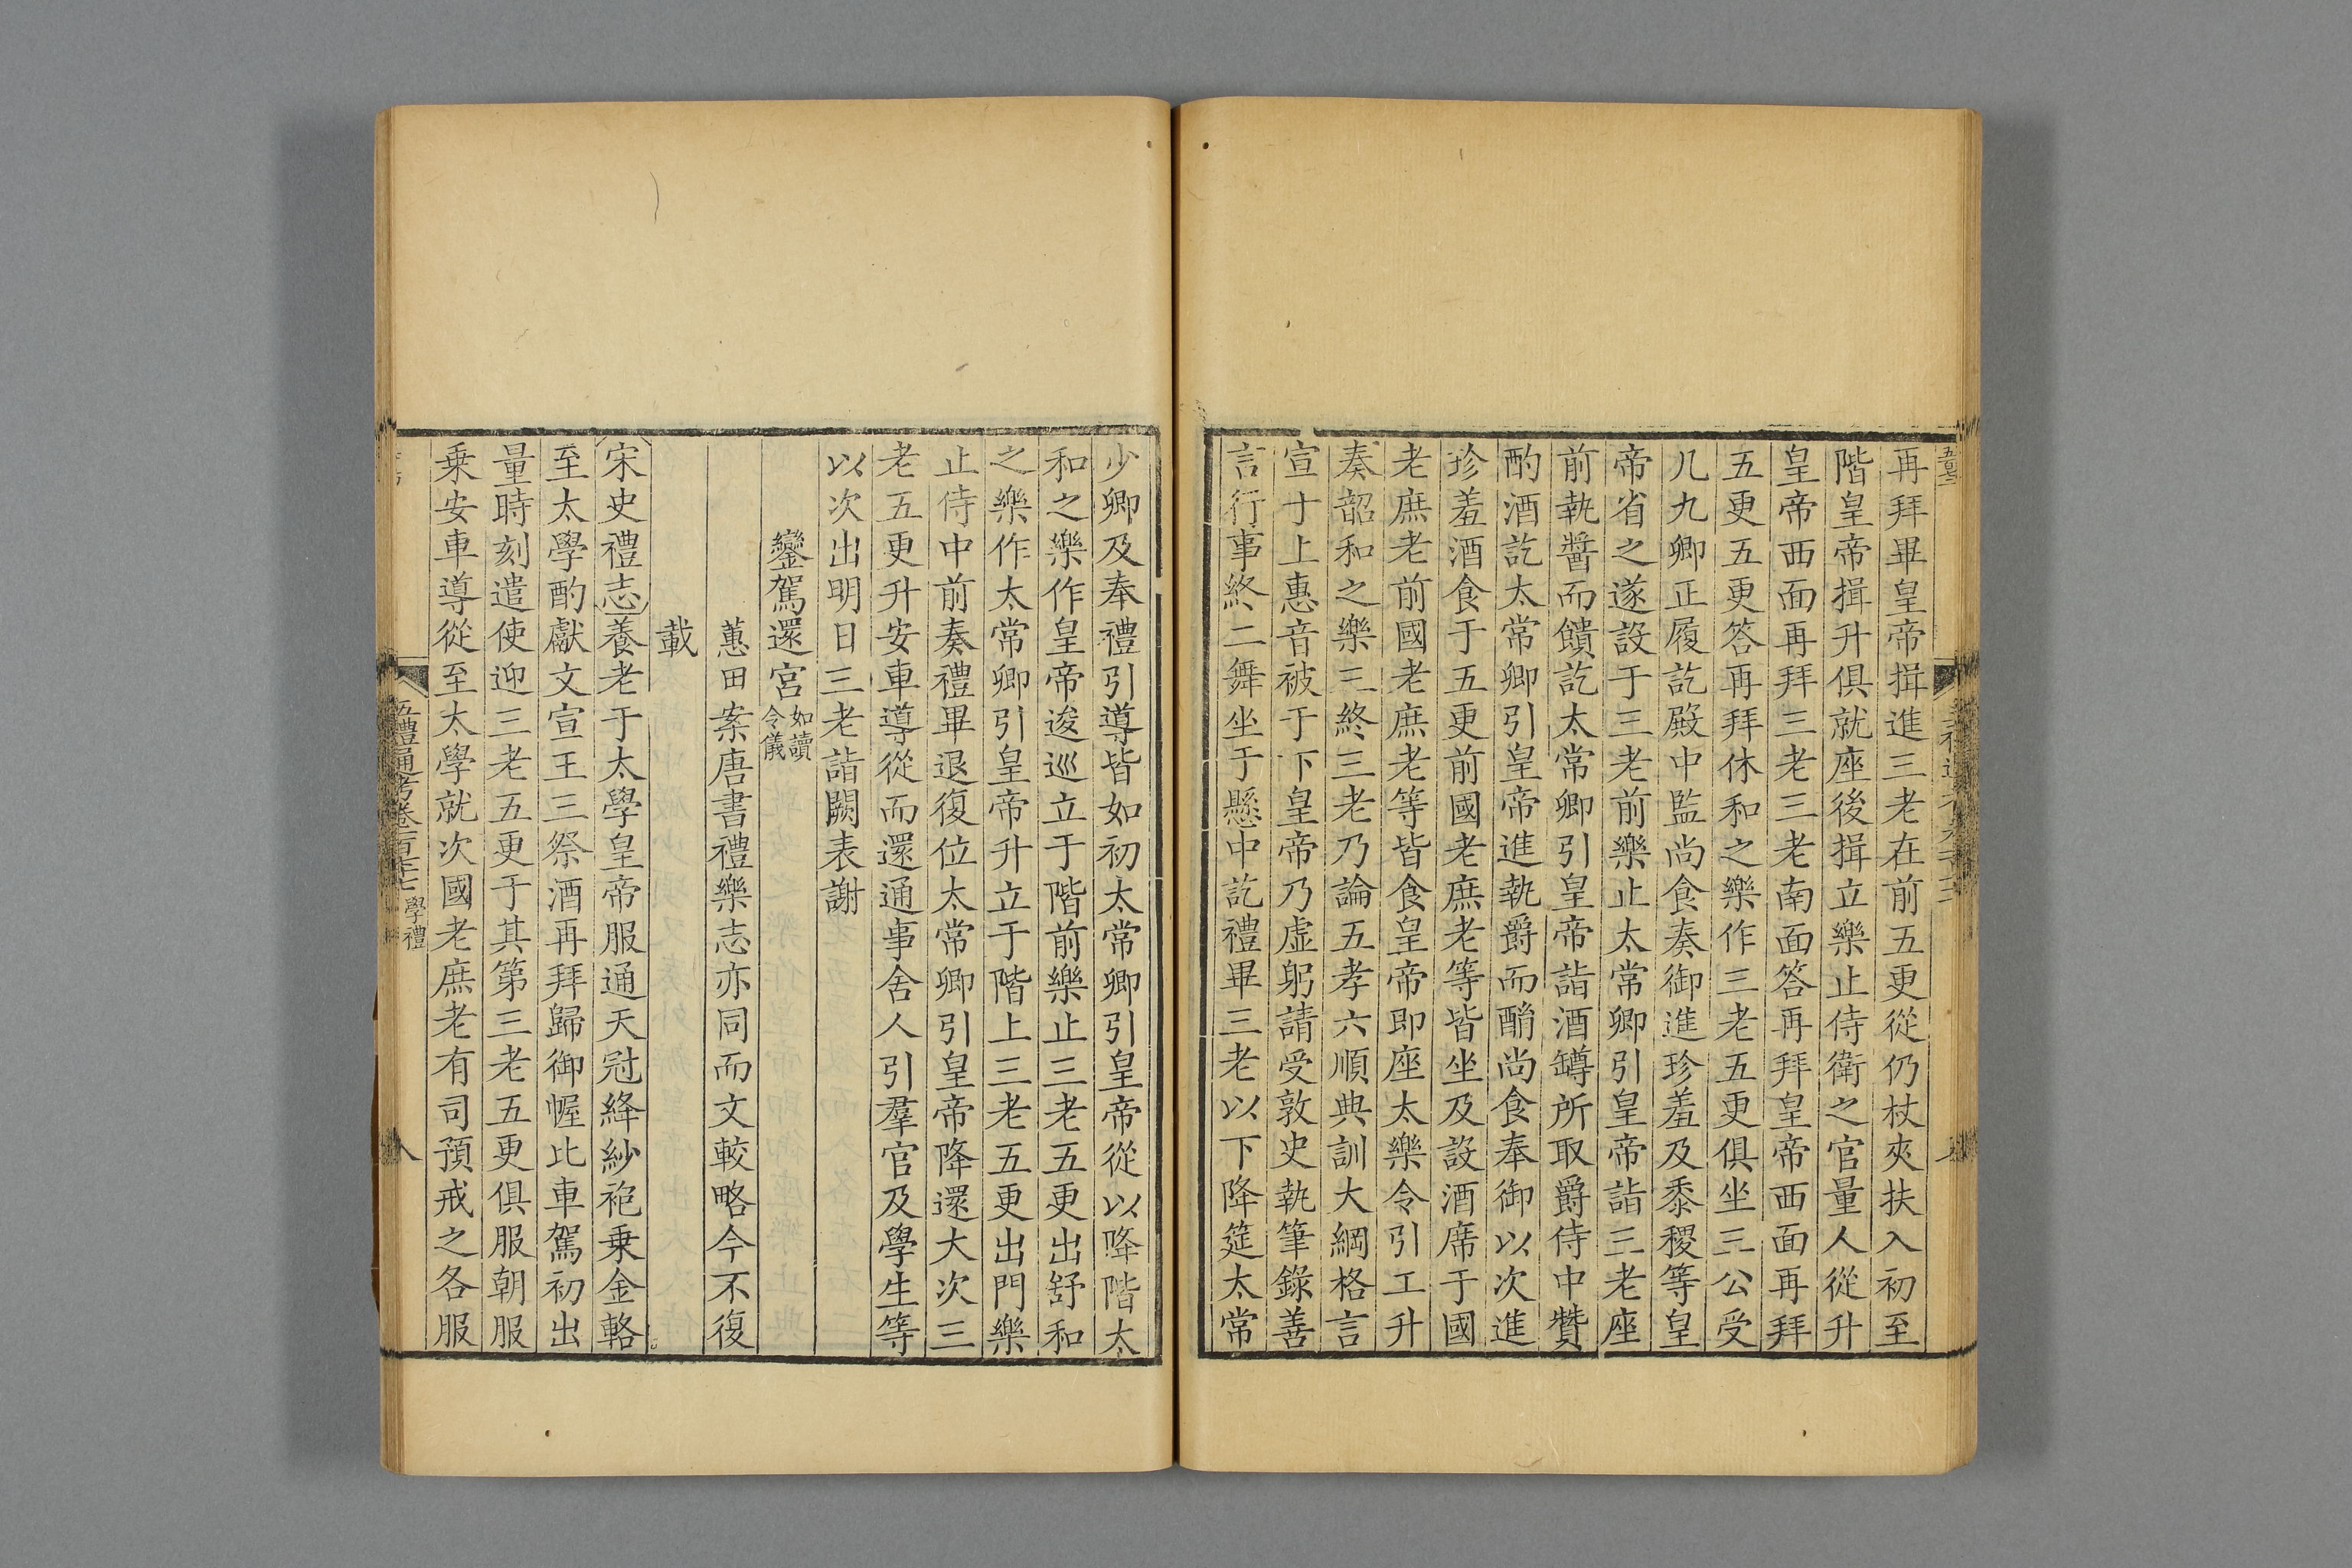 再拜畢皇帝揖進三老在前五更從仍杖夾扶入初至
階皇帝揖升俱就座後揖立樂止侍衛之官量人從升
皇帝西面再拜三老三老南面答再拜皇帝西面再拜
五更五更答再拜休和之樂作三老五更俱坐三公受
几九卿正履訖殿中監尚食奏御進珍羞及黍稷等皇
帝省之遂設于三老前樂止太常卿引皇帝詣三老座
前執醬而饋訖太常卿引皇帝詣酒罇所取爵侍中贊
酌酒訖太常卿引皇帝進執爵而酳尚食奉御以次進
珍羞酒食于五更前國老庶老等皆坐及設酒席于國
老庶老前國老庶老等皆食皇帝即座太樂令引工升
奏韶和之樂三終三老乃論五孝六順典訓大綱格言
宣于上惠音被于下皇帝乃虛躬請受敦史執筆錄善
言行事終二舞坐于懸中訖禮畢三老以下降筵太常
少卿及奉禮引導皆如初太常卿引皇帝從以降階太
和之樂作皇帝逡巡立于階前樂止三老五更出舒和
之樂作太常卿引皇帝升立于階上三老五更出門樂
止侍中前奏禮畢退復位太常卿引皇帝降還大次三
老五更升安車導從而還通事舍人引羣官及學生等
以次出明日三老詣闕表謝
鑾駕還宮如讀令儀
蕙田案唐書禮樂志亦同而文較略今不復
載
宋史禮志養老于太學皇帝服通天冠絳紗袍乗金輅
至太學酌獻文宣王三祭酒再拜歸御幄比車駕初出
量時刻遣使迎三老五更于其第三老五更俱服朝服
乗安車導從至太學就次國老庶老有司預戒之各服
五禮通考卷一百七十七 學禮
八